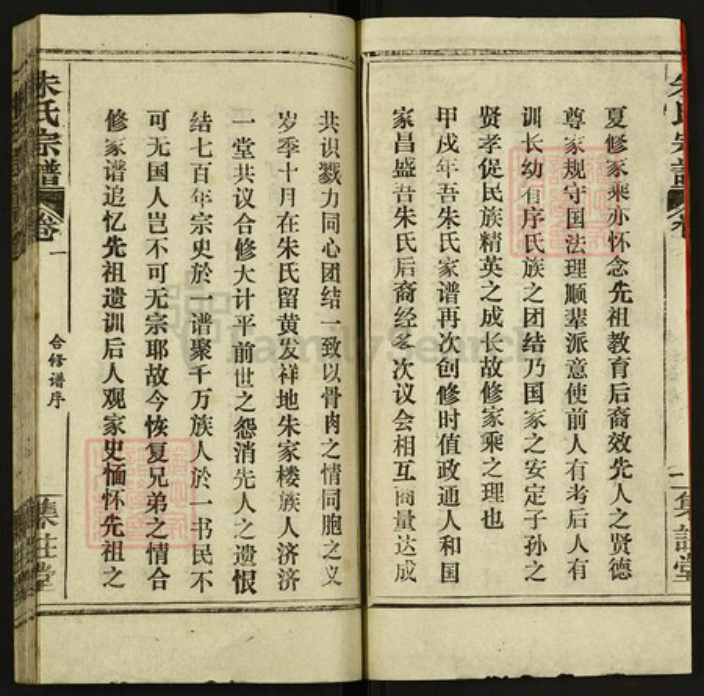 夏修家乘亦怀念先祖教育后裔效先人之贤德
尊家规守国法理顺辈派意使前人有考后人有
训长幼有序氏族之团结乃国家之安定子孙之
贤孝促民族精英之成长故修家乘之理也
甲戌年吾朱氏家谱再次创修时值政通人和国
家昌盛吾朱氏后裔经多次议会相互商量达成
共识戮力同心团结一致以骨肉之情同胞之义
岁季十月在朱氏留黄发祥地朱家楼族人济济
一堂共议合修大计平前世之怨消先人之遗恨
结七百年宗史於一谱聚千万族人於一书民不
可无国人岂不可无宗耶故今恢复兄弟之情合
修家谱追忆先祖遗训后人观家史愐怀先祖之
朱氏宗譜
卷一
合修谱序
FamilySearch